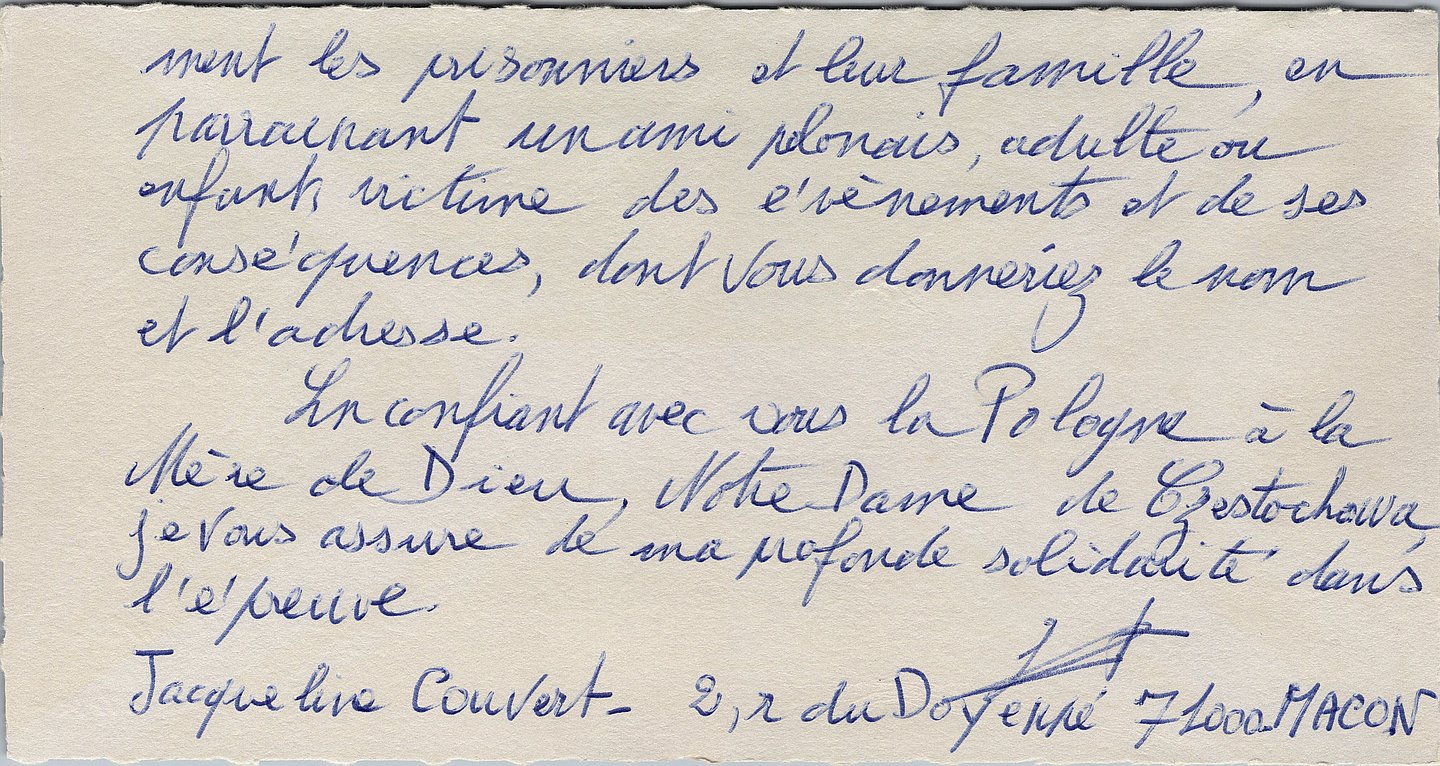 ment les prisonniers et leur famille, en
parrainant un ami polonais, adulte ou
enfant, victime des évènements et de ses
conséquences, dont vous donneriez le nom
et l'adresse.
En confiant avec vous la Pologne à la
Mère de Dieu, Notre Dame de Częstochowa,
je vous assure de ma profonde solidarité dans
l'épreuve.
Jacqueline Couvert - 2, r du Doyenné 71000 MACON